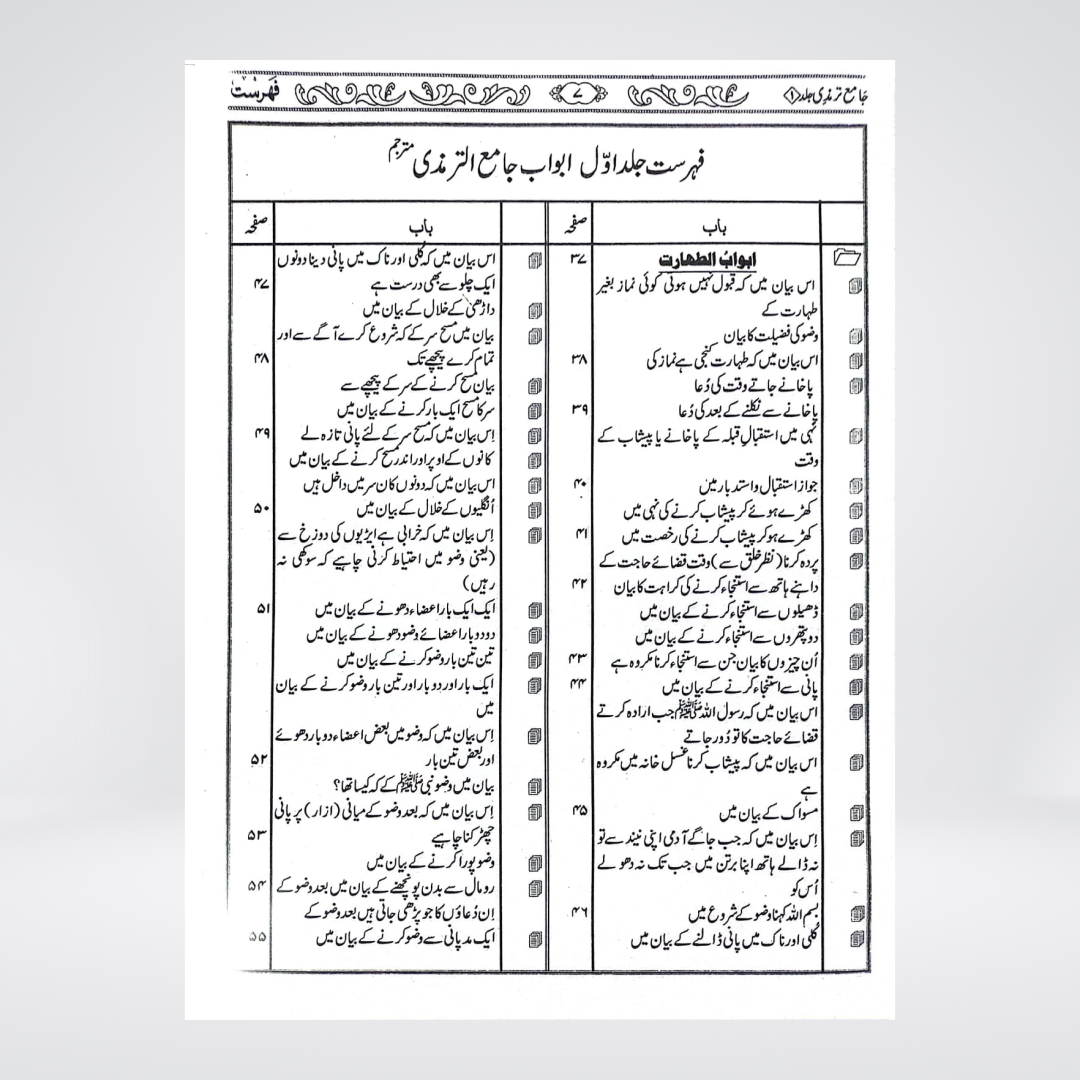 جامع ترمذی جلد ۱
۷
فہرست
فہرست جلد اوّل ابواب جامع الترمذی مترجم
باب
صفحہ
ابوابُ الطهارت
۳۷
اس بیان میں کہ قبول نہیں ہوتی کوئی نماز بغیر
طہارت کے
وضو کی فضیلت کا بیان
اس بیان میں کہ طہارت کنجی ہے نماز کی
۳۸
پاخانے جاتے وقت کی دُعا
پاخانے سے نکلنے کے بعد کی دُعا
۳۹
نہی میں استقبالِ قبلہ کے پاخانے یا پیشاب کے
وقت
جواز استقبال و استدبار میں
۴۰
کھڑے ہوئے کر پیشاب کرنے کی نہی میں
کھڑے ہوکر پیشاب کرنے کی رخصت میں
۴۱
پردہ کرنا (نظر خلق سے) وقت قضائے حاجت کے
داہنے ہاتھ سے استنجاء کرنے کی کراہت کا بیان
۴۲
ڈھیلوں سے استنجاء کرنے کے بیان میں
دو پتھروں سے استنجاء کرنے کے بیان میں
اُن چیزوں کا بیان جن سے استنجاء کرنا مکروہ ہے
۴۳
پانی سے استنجاء کرنے کے بیان میں
۴۴
اس بیان میں کہ رسول اللہ ﷺ جب ارادہ کرتے
قضائے حاجت کا تو دُور جاتے
اس بیان میں کہ پیشاب کرنا غسل خانہ میں مکروہ
ہے
مسواک کے بیان میں
۴۵
اِس بیان میں کہ جب جاگے آدمی اپنی نیند سے تو
نہ ڈالے ہاتھ اپنا برتن میں جب تک نہ دھولے
اُس کو
بسم اللہ کہنا وضو کے شروع میں
۴۶
کُلی اور ناک میں پانی ڈالنے کے بیان میں
باب
صفحہ
اس بیان میں کہ کُلی اور ناک میں پانی دینا دونوں
ایک چلو سے بھی درست ہے
۴۷
داڑھی کے خلال کے بیان میں
بیان میں مسح سر کے کہ شروع کرے آگے سے اور
تمام کرے پیچھے تک
۴۸
بیان مسح کرنے کے سر کے پیچھے سے
سر کا مسح ایک بار کرنے کے بیان میں
اِس بیان میں کہ مسح سر کے لئے پانی تازہ لے
۴۹
کانوں کے اوپر اور اندر مسح کرنے کے بیان میں
اس بیان میں کہ دونوں کان سر میں داخل ہیں
اُنگلیوں کے خلال کے بیان میں
۵۰
اِس بیان میں کہ خرابی ہے ایڑیوں کی دوزخ سے
(یعنی وضو میں احتیاط کرنی چاہیے کہ سوکھی نہ
رہیں)
ایک ایک بار اعضاء دھونے کے بیان میں
۵۱
دو دو بار اعضائے وضو دھونے کے بیان میں
تین تین بار وضو کرنے کے بیان میں
ایک بار اور دو بار اور تین بار وضو کرنے کے بیان
میں
اِس بیان میں کہ وضو میں بعض اعضاء دو بار دھوئے
اور بعض تین بار
۵۲
بیان میں وضو نبی ﷺ کے کہ کیسا تھا؟
اِس بیان میں کہ بعد وضو کے میانی (ازار) پر پانی
چھڑکنا چاہیے
۵۳
وضو پورا کرنے کے بیان میں
رومال سے بدن پونچھنے کے بیان میں بعد وضو کے
۵۴
اِن دُعاؤں کا جو پڑھی جاتی ہیں بعد وضو کے
ایک مد پانی سے وضو کرنے کے بیان میں
۵۵